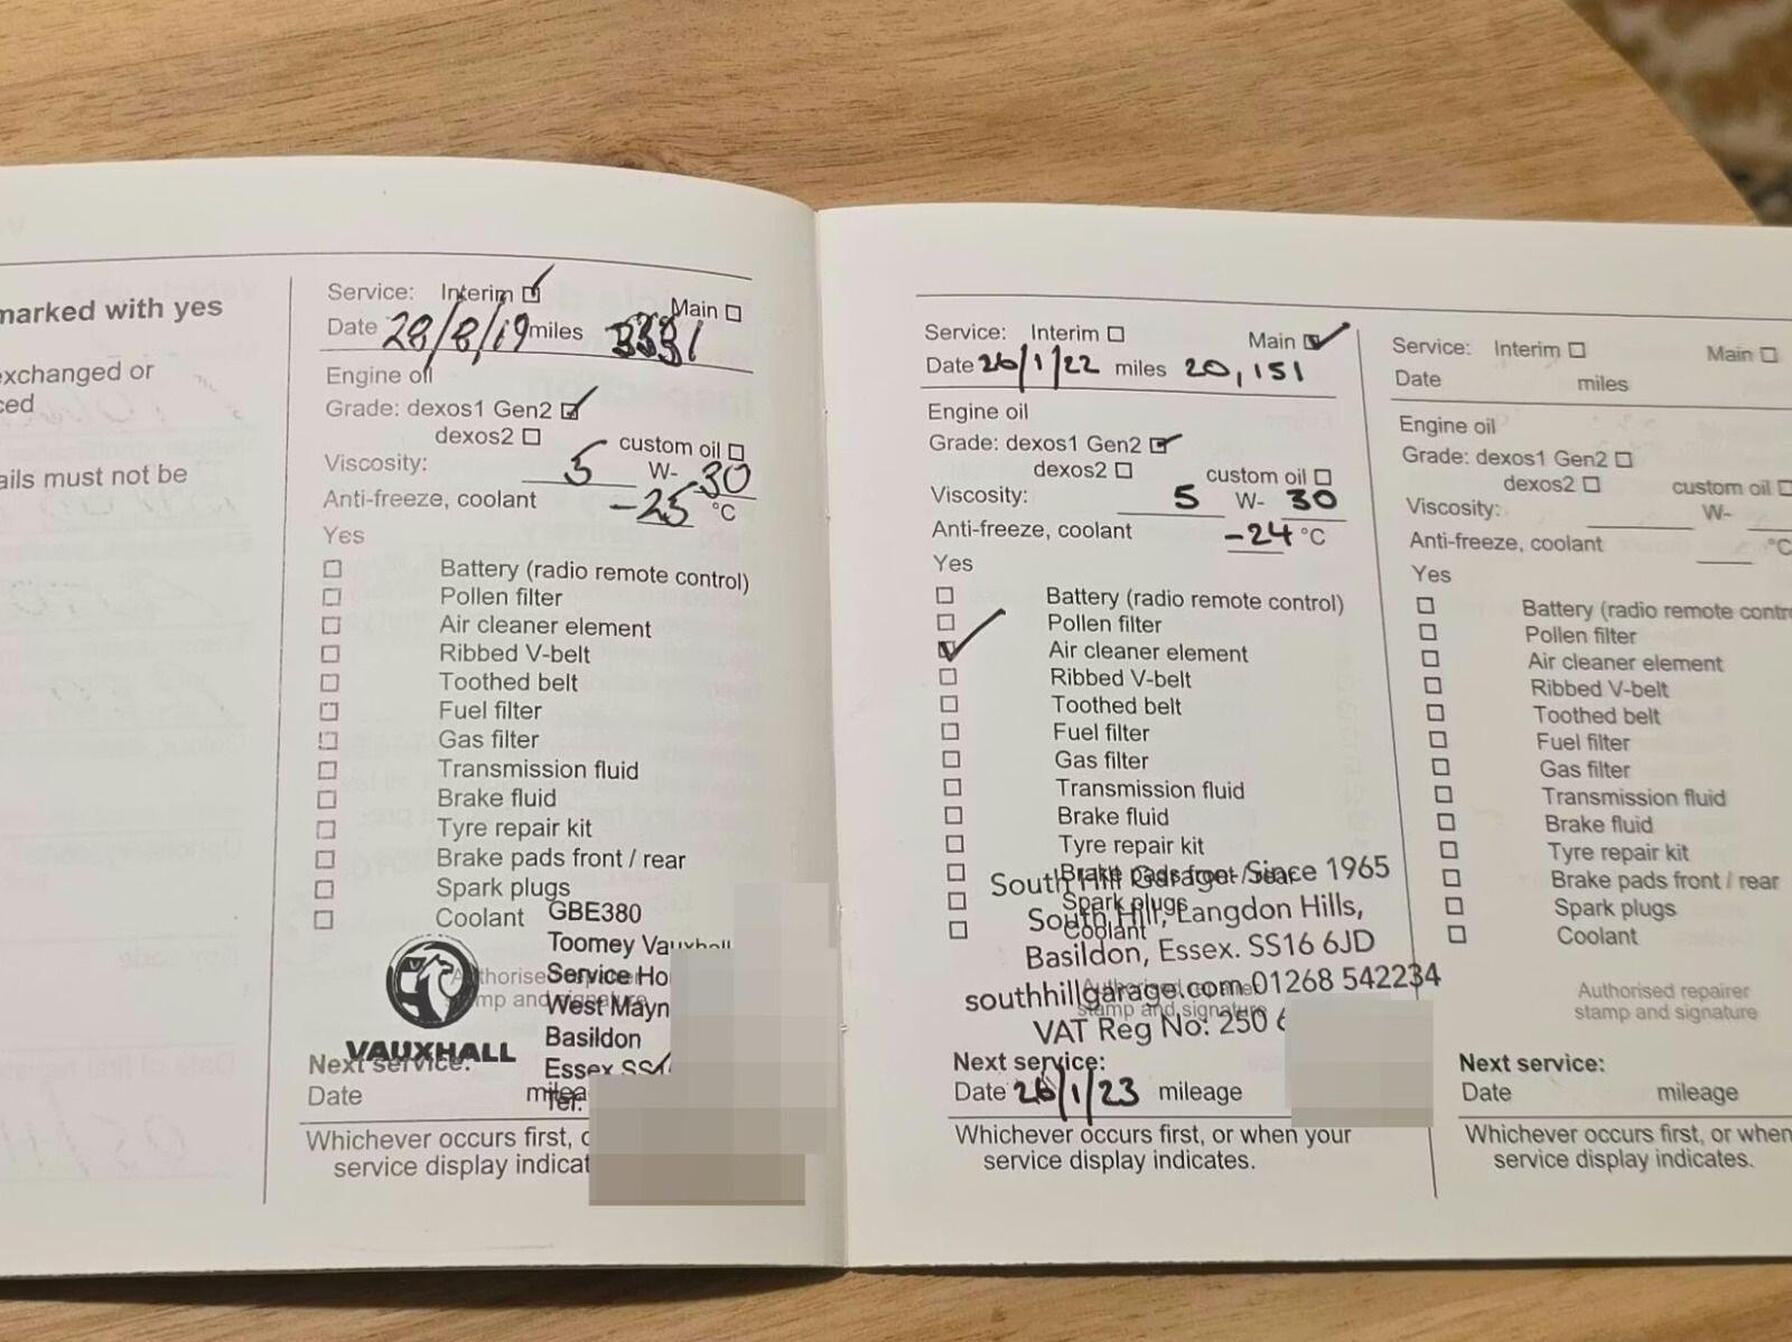 marked with yes
exchanged or
ced
ails must not be
Service: Interim Main
Date 28/8/19 miles 3331
Engine oil
Grade: dexos1 Gen2
dexos2 custom oil
Viscosity: 5 W- 30
Anti-freeze, coolant -25 °C
Yes
Battery (radio remote control)
Pollen filter
Air cleaner element
Ribbed V-belt
Toothed belt
Fuel filter
Gas filter
Transmission fluid
Brake fluid
Tyre repair kit
Brake pads front / rear
Spark plugs
Coolant
GBE380
Toomey Vauxhall
Service Ho
West Mayn
Basildon
Essex SS
Tel:
VAUXHALL
Next service:
Date
Whichever occurs first,
service display indicat
Service: Interim Main
Date 26/1/22 miles 20,151
Engine oil
Grade: dexos1 Gen2
dexos2 custom oil
Viscosity: 5 W- 30
Anti-freeze, coolant -24 °C
Yes
Battery (radio remote control)
Pollen filter
Air cleaner element
Ribbed V-belt
Toothed belt
Fuel filter
Gas filter
Transmission fluid
Brake fluid
Tyre repair kit
Brake pads front / rear
Spark plugs
Coolant
South Hill Garage - Since 1965
South Hill, Langdon Hills,
Basildon, Essex. SS16 6JD
southhillgarage.com 01268 542234
VAT Reg No: 250 6
stamp and signature
Next service:
Date 26/1/23 mileage
Whichever occurs first, or when your
service display indicates.
Service: Interim Main
Date miles
Engine oil
Grade: dexos1 Gen2
dexos2 custom oil
Viscosity: W-
Anti-freeze, coolant °C
Yes
Battery (radio remote contr
Pollen filter
Air cleaner element
Ribbed V-belt
Toothed belt
Fuel filter
Gas filter
Transmission fluid
Brake fluid
Tyre repair kit
Brake pads front / rear
Spark plugs
Coolant
Authorised repairer
stamp and signature
Next service:
Date mileage
Whichever occurs first, or when
service display indicates.